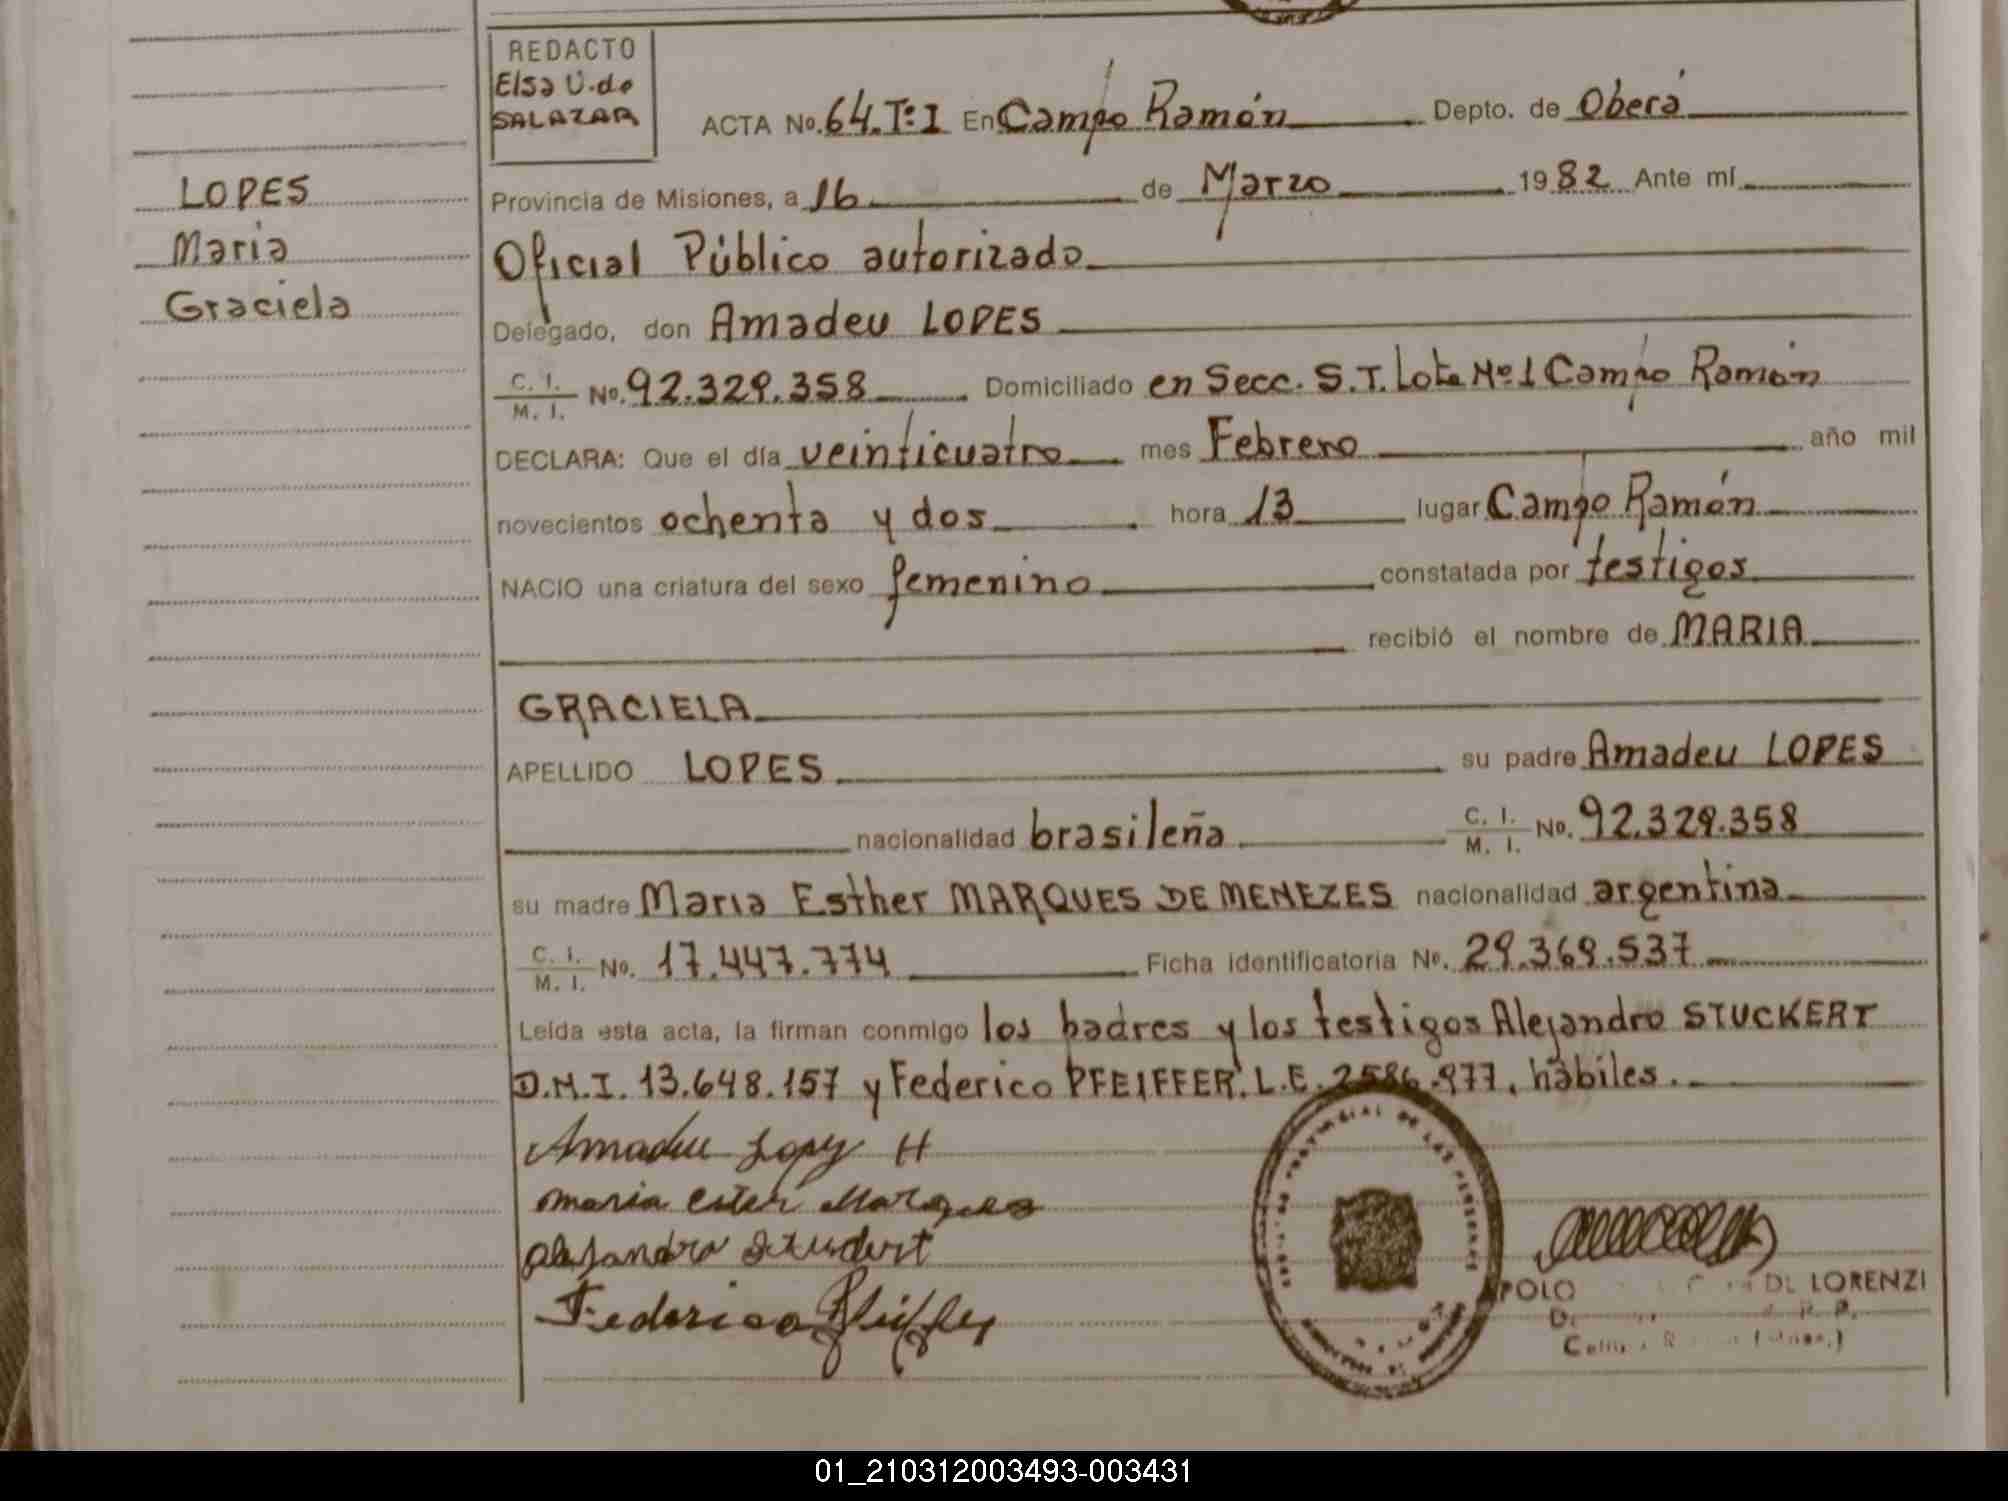 REDACTO
Elsa U. de
SALAZAR
ACTA No. 64.Tº I En Campo Ramón Depto. de Oberá
LOPES
Maria
Graciela
Provincia de Misiones, a 16 de Marzo 1982 Ante mí
Oficial Público autorizado
Delegado, don Amadeu LOPES
C. I.
M. I. No. 92.329.358 Domiciliado en Secc. S.T. Lote Nº 1 Campo Ramón
DECLARA: Que el día veinticuatro mes Febrero año mil
novecientos ochenta y dos hora 13 lugar Campo Ramón
NACIO una criatura del sexo femenino constatada por testigos
recibió el nombre de MARIA
GRACIELA
APELLIDO LOPES su padre Amadeu LOPES
nacionalidad brasileña C. I.
M. I. No. 92.329.358
su madre Maria Esther MARQUES DE MENEZES nacionalidad argentina
C. I.
M. I. No. 17.447.774 Ficha identificatoria No. 29.369.537
Leída esta acta, la firman conmigo los padres y los testigos Alejandro STUCKERT
D.N.I. 13.648.157 y Federico PFEIFFER. L.E. 2586.977, hábiles.
Amadeu Lopes H
maria ester Marques
alejandro Stuckert
Federico Pfeiffer
PROVINCIAL DE LAS PERSONAS
POLO DE LORENZI
01_210312003493-003431